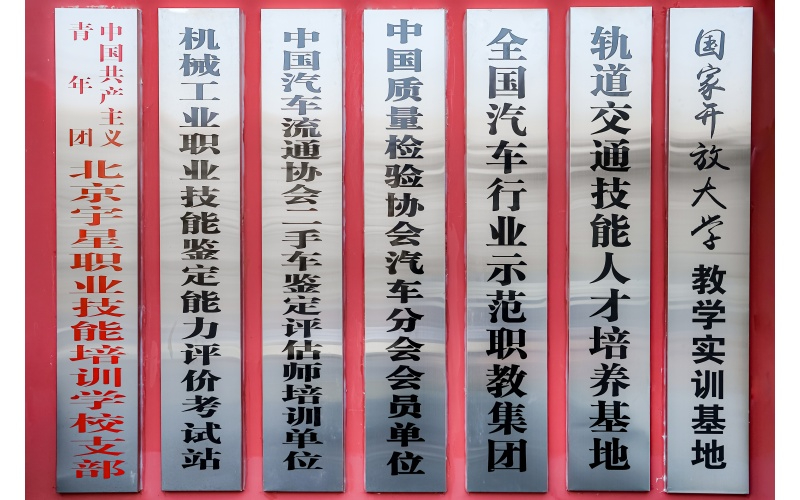 中国共产主义
青年团
北京宇星职业技能培训学校支部
机械工业职业技能鉴定能力评价考试站
中国汽车流通协会二手车鉴定评估师培训单位
中国质量检验协会汽车分会会员单位
全国汽车行业示范职教集团
轨道交通技能人才培养基地
国家开放大学教学实训基地